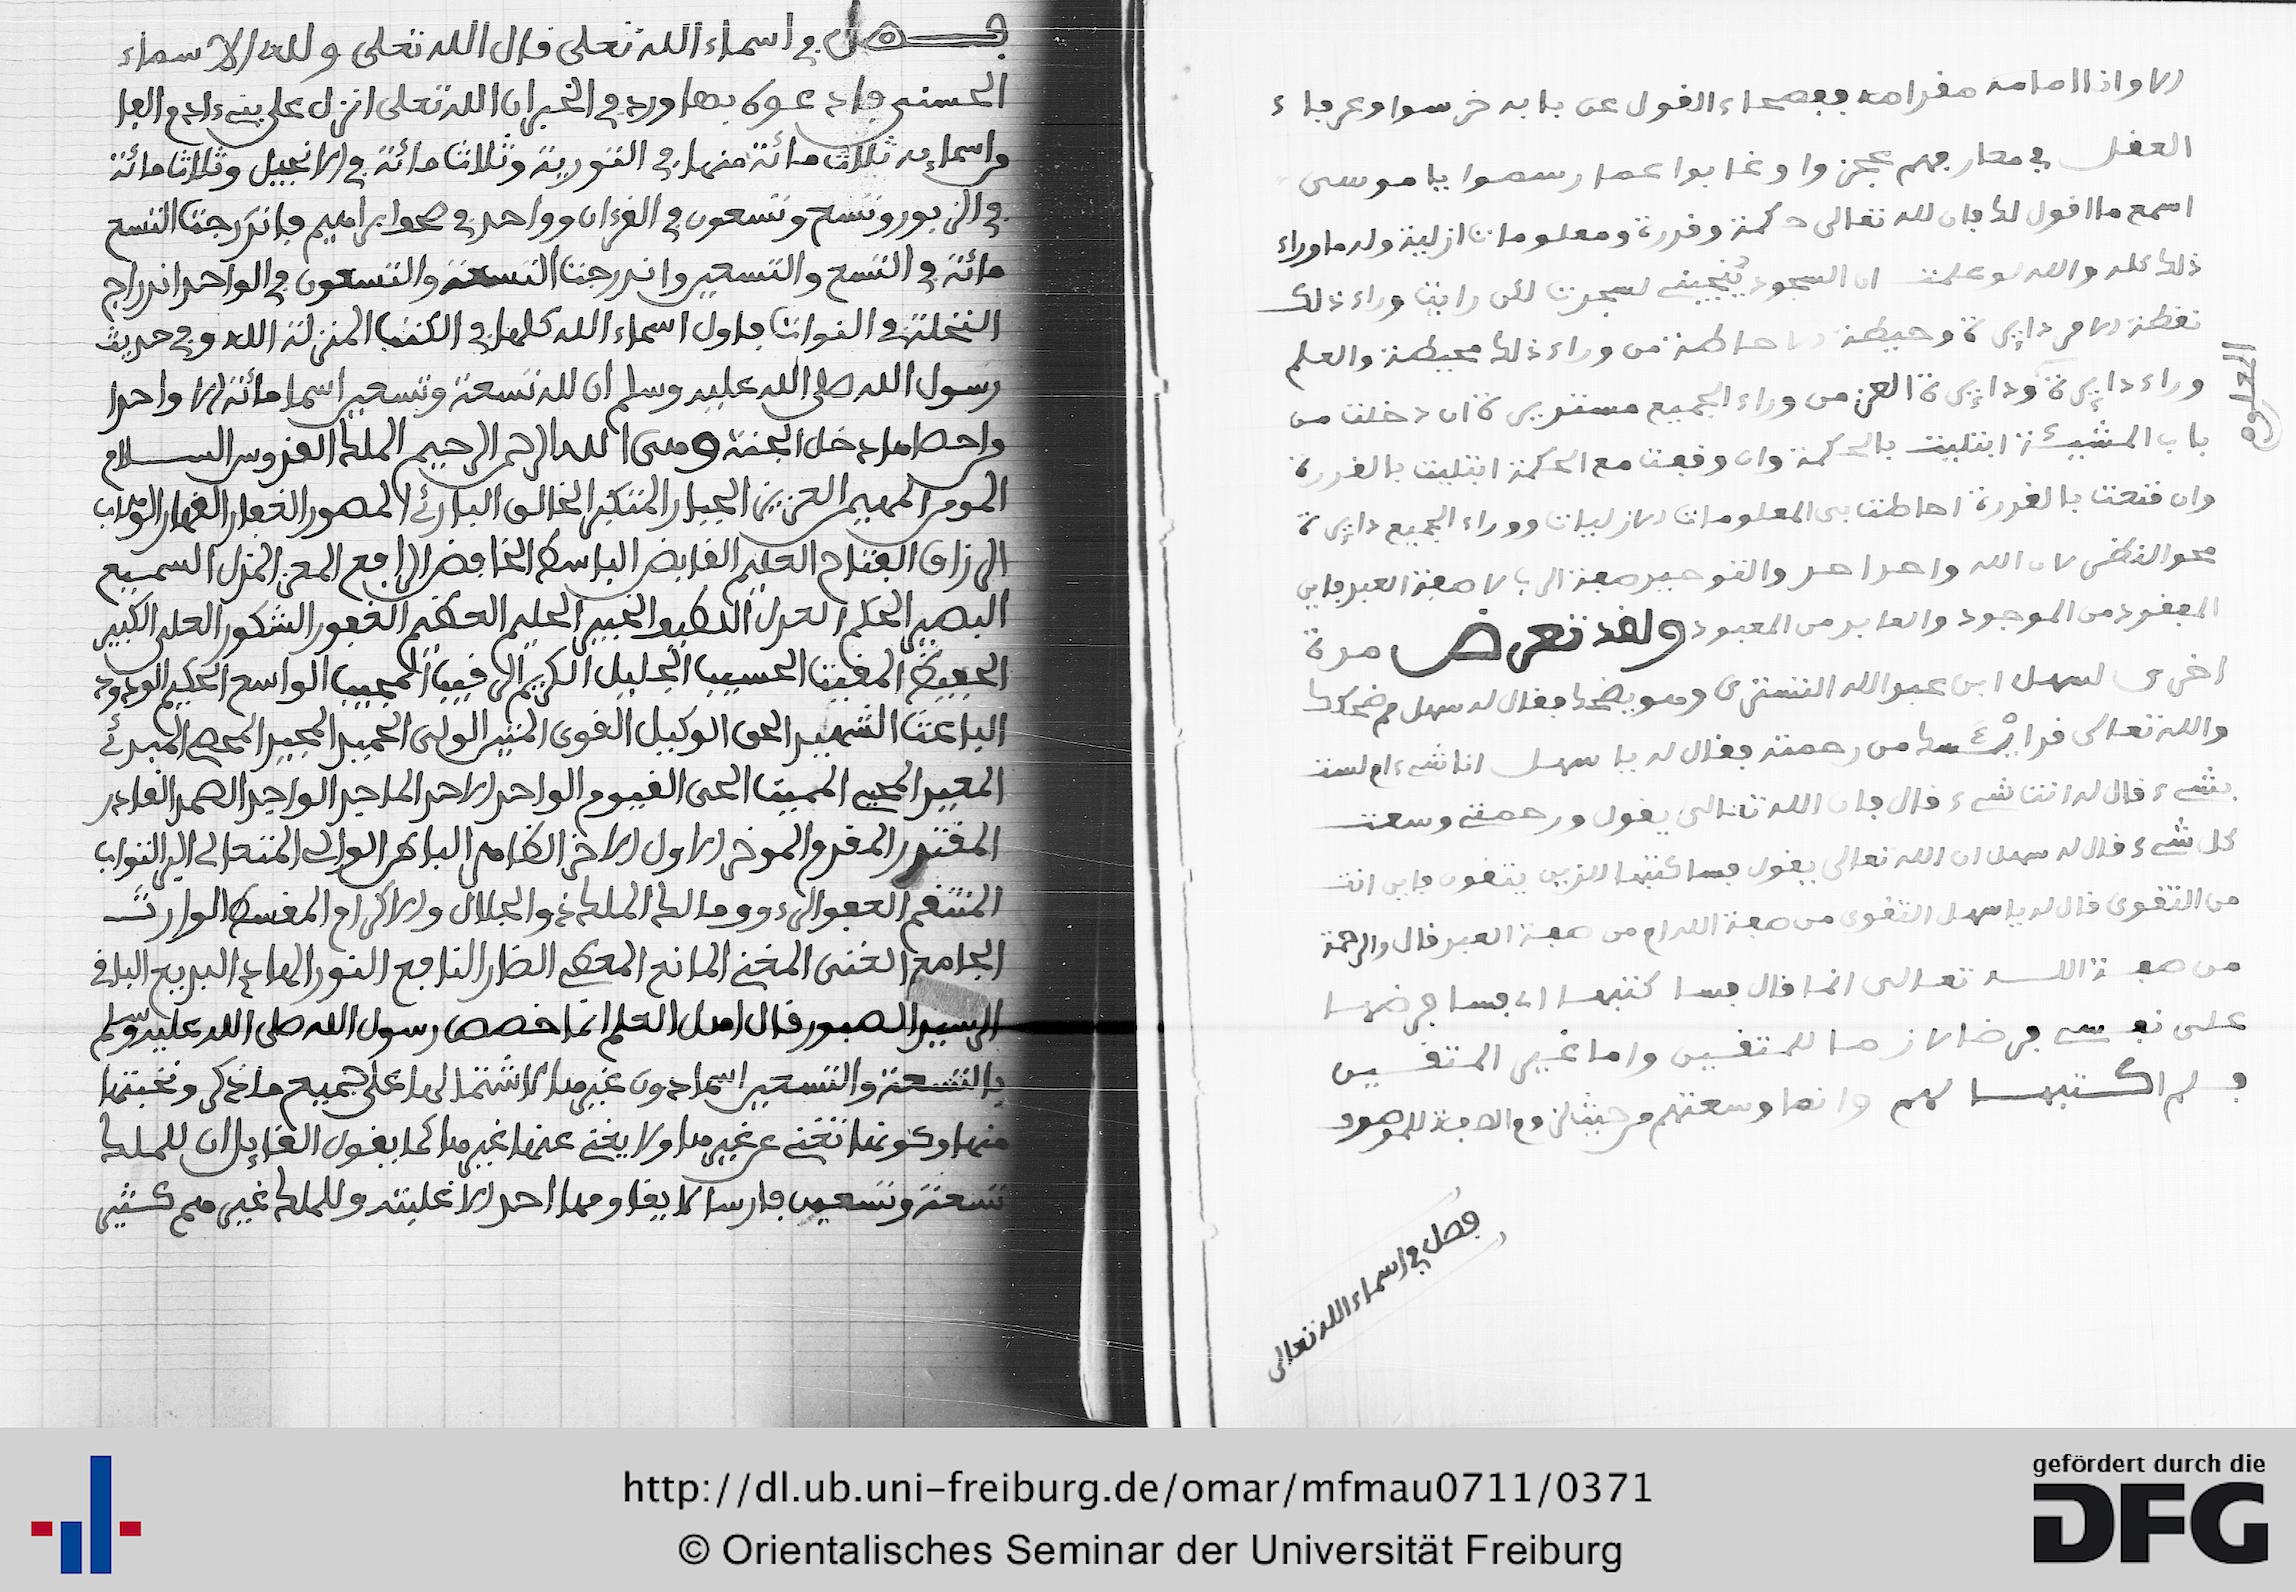 الا واذا اقامه مقرامه ففصحاء القول عن بابه خرسوا وعرفاء
العقل في معارجهم عجزوا وغابوا عما رسموا يا موسى
اسمع ما اقول لك فان لله تعالى حكمة وقدرة ومعلومات ازلية وله ما وراء
ذلك كله والله لو علمت ان السجود ينجيني لسجدت لكن رايت وراء ذلك
نقطة الامر دايرة وحيطة الاحاطة من وراء ذلك محيطة والعلم
وراء دايرة ودايرة العز من وراء الجميع مستديرة ان دخلت من
باب المشيئة ابتليت بالحكمة وان وقعت مع الحكمة ابتليت بالقدرة
وان قنعت بالقدرة احاطت بي المعلومات الازليات ووراء الجميع دايرة
محو النظر لان الله واحد احد والتوحيد صفة الرب لا صفة العبد فاين
المفقود من الموجود والعابد من المعبود ولقد تعرض مرة
اخرى لسهل ابن عبد الله التستري وهو يضحك فقال له سهل مم ضحكك
والله تعالى قد ايئسك من رحمته فقال له يا سهل انا شيء ام لست
بشيء قال له انت شيء قال فان الله تعالى يقول ورحمتي وسعت
كل شيء قال له سهل ان الله تعالى يقول فساكتبها للذين يتقون فاين انت
من التقوى قال له يا سهل التقوى من صفة الله ام من صفة العبد قال والرحمة
من صفة اللـه تعالى انما قال فساكتبها اي فسافرضها
على نفسي فرضا لازما للمتقين واما غير المتقين
فلم اكتبها لهم وانما وسعتهم من حيث لزوم الصفة للموصوف
فصل في اسماء الله تعالى
فصل في اسماء الله تعلى قال الله تعلى ولله الاسماء
الحسنى فادعوه بها ورد في الخبر ان الله تعلى انزل على بني ءادم الفا
من اسمايه ثلاث مائة منها في التورية وثلاث مائة في الانجيل وثلاث مائة
في الزبور وتسع وتسعون في القرءان وواحد في صحف ابراهيم فاندرجت التسع
مائة في التسع والتسعين واندرجت التسعة والتسعون في الواحد اندراج
النخلة في النوات فاول اسماء الله كلها في الكتب المنزلة الله وفي حديث
رسول الله صلى الله عليه وسلم ان لله تسعة وتسعين اسما مائة الا واحدا
من احصاها دخل الجنة وهي الله الرحمن الرحيم الملك القدوس السلام
المومن المهيمن العزيز الجبار المتكبر الخالق البارئ المصور الغفار القهار الوهاب
الرزاق الفتاح العليم القابض الباسط الخافض الرافع المعز المذل السميع
البصير الحكم العدل اللطيف الخبير الحليم العظيم الغفور الشكور العلي الكبير
الحفيظ المقيت الحسيب الجليل الكريم الرقيب المجيب الواسع الحكيم الودود
الباعث الشهيد الحق الوكيل القوي المتين الولي الحميد المجيد المحصي المبدئ
المعيد المحيي المميت الحي القيوم الواحد الاحد الماجد الواجد الصمد القادر
المقتدر المقدم الموخر الاول الاخر الظاهر الباطن الوالي المتعالي البر التواب
المنتقم العفو الرءوف مالك الملك ذو الجلال والاكرام المقسط الوارث
الجامع الغني المغني المانع المعطي الضار النافع النور الهادي البديع الباقي
الرشيد الصبور قال اهل العلم انما خصص رسول الله صلى الله عليه وسلم
بالتسعة والتسعين اسما دون غيرها لاشتمالها على جميع ما ذكر ونخبتها
منها وكونها تغني عن غيرها ولا يغني عنها غيرها كما يقول القايل ان للملك
تسعة وتسعين فارسا لا يقاومها احد الا غلبته وللملك غيرهم كثير
http://dl.ub.uni-freiburg.de/omar/mfmau0711/0371
© Orientalisches Seminar der Universität Freiburg
gefördert durch die
DFG